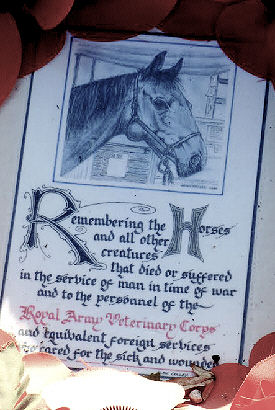 Remembering the Horses
and all other
creatures
that died or suffered
in the service of man in time of war
and to the personnel of the
Royal Army Veterinary Corps
and equivalent foreign services
cared for the sick and wounded